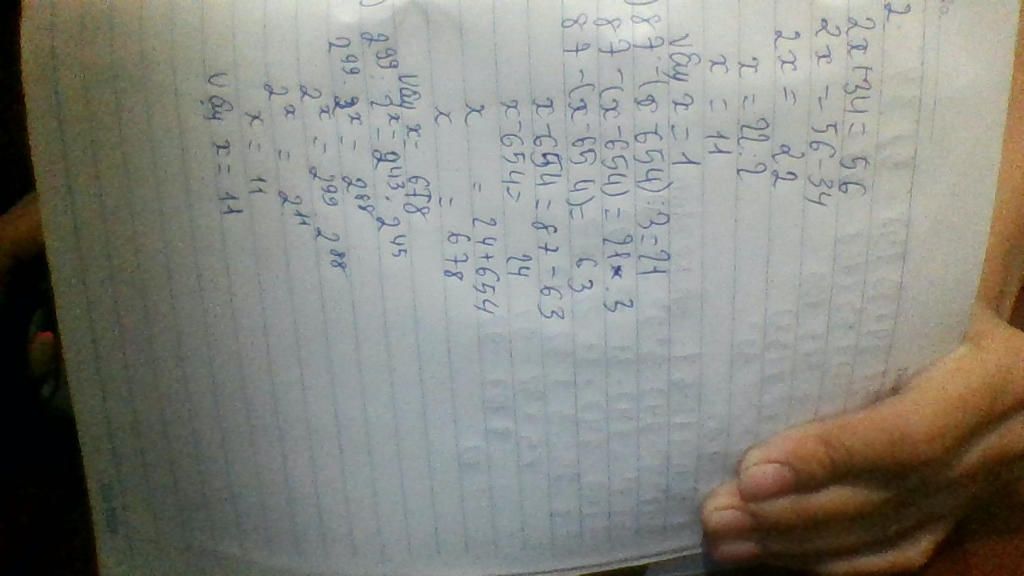 2.
2x + 34 = 56
2x = 56 - 34
2x = 22
x = 22 : 2
x = 11
Vậy x = 1
) 87 - (x - 654) : 3 = 21
87 - (x - 654) = 21 . 3
87 - (x - 654) = 63
x - 654 = 87 - 63
x - 654 = 24
x = 24 + 654
x = 678
Vậy x = 678
2⁹⁹ : 2ˣ = 2⁴³ . 2⁴⁵
2⁹⁹ : 2ˣ = 2⁸⁸
2ˣ = 2⁹⁹ 2⁸⁸
2ˣ = 2¹¹
x = 11
Vậy x = 11